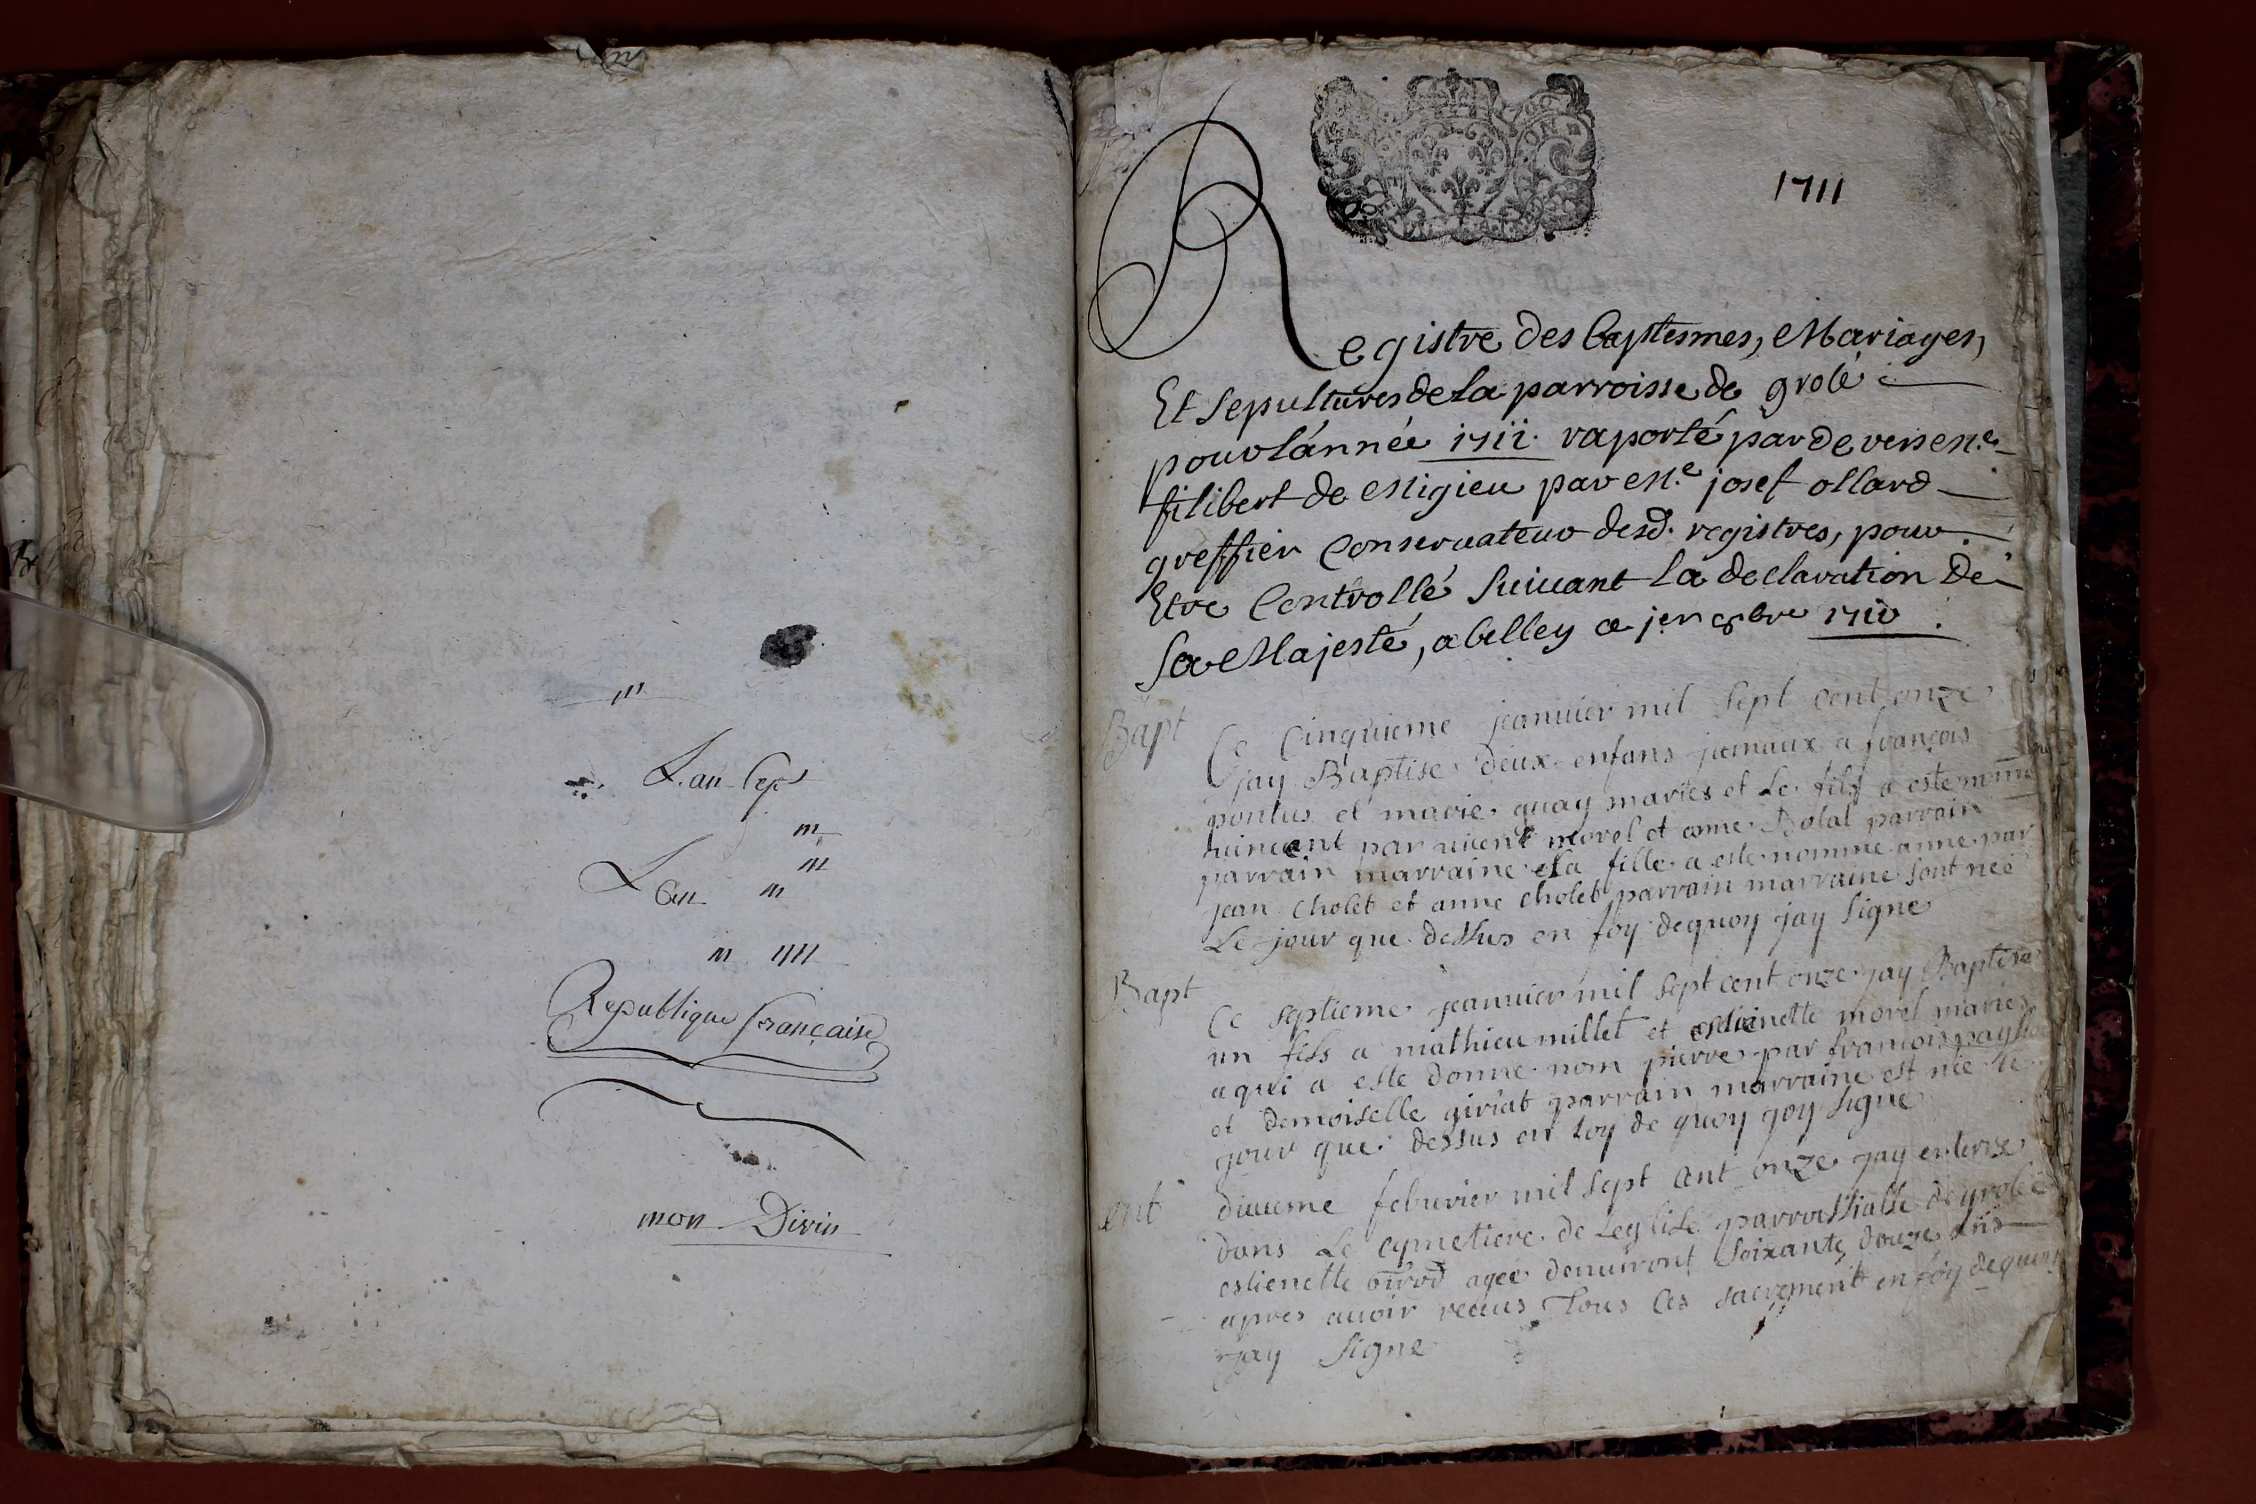 L'an Sept
L'an
Republique française
mon Divin
1711
Registre des baptesmes, Mariages,
Et Sepultures de La parroisse de grolé
pour l'année 1711. raporté par devers Me.
filibert de Migieu par Me. josef ollard
greffier Conservateur desd. registres, pour
Etre Controllé Suivant La declaration De
Sa Majesté, a belley ce jer 8bre 1710.
Bapt
Ce Cinquieme jeanuier mil sept cent onze
jay Baptise deux enfans jumaux a françois
pontus et marie quay maries et Le fils a este nomme
par morel et parrain
parrain marraine et la fille a este nomme anne par
jean cholet et anne cholet parrain marraine sont nee
Le jour que dessus en foy dequoy jay Signe
Bapt
Ce septieme jeanuier mil sept cent onze jay Baptise
un fils a mathieu millet et estienette morel maries
a qui a este donne nom pierre par francois
et demoiselle giriat parrain marraine est nee le
jour que dessus en foy de quoy jay signe
ent
febuvrier mil sept cent onze jay enterre
dans Le cymetiere de Leglise parroissialle de grolee
estienette agee denuiront soixante douze ans
apres auoir receus Tous Les sacrement en foy dequoy
jay Signe